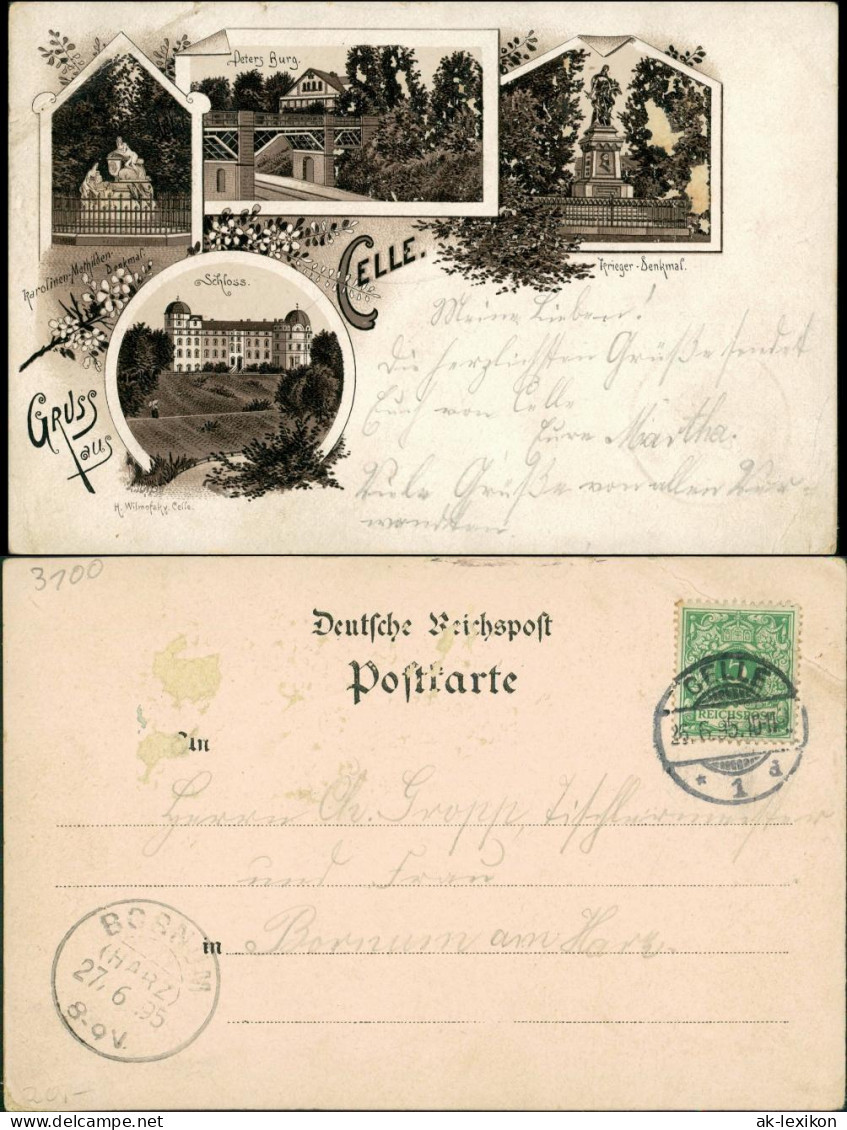 Peters Burg.
Karolinen-Mathilden-Denkmal.
Krieger-Denkmal.
CELLE.
Schloss.
GRUSS aus
Meine Lieben!
Die herzlichsten Grüße sendet
Euch von Celle
Eure Martha.
Viele Grüße von allen Ver-
wandten.
Celle.
3100
Deutsche Reichspost
Postkarte
CELLE
REICHSPOST
6.95.
* 1 d
An
Herrn Ch. Gropp, Tischlermeister
und Frau
in Bornum am Harz.
BORNUM
(HARZ)
27. 6. 95
8-9V.
20,-
ak-lexikon
www.ak-lexikon.com